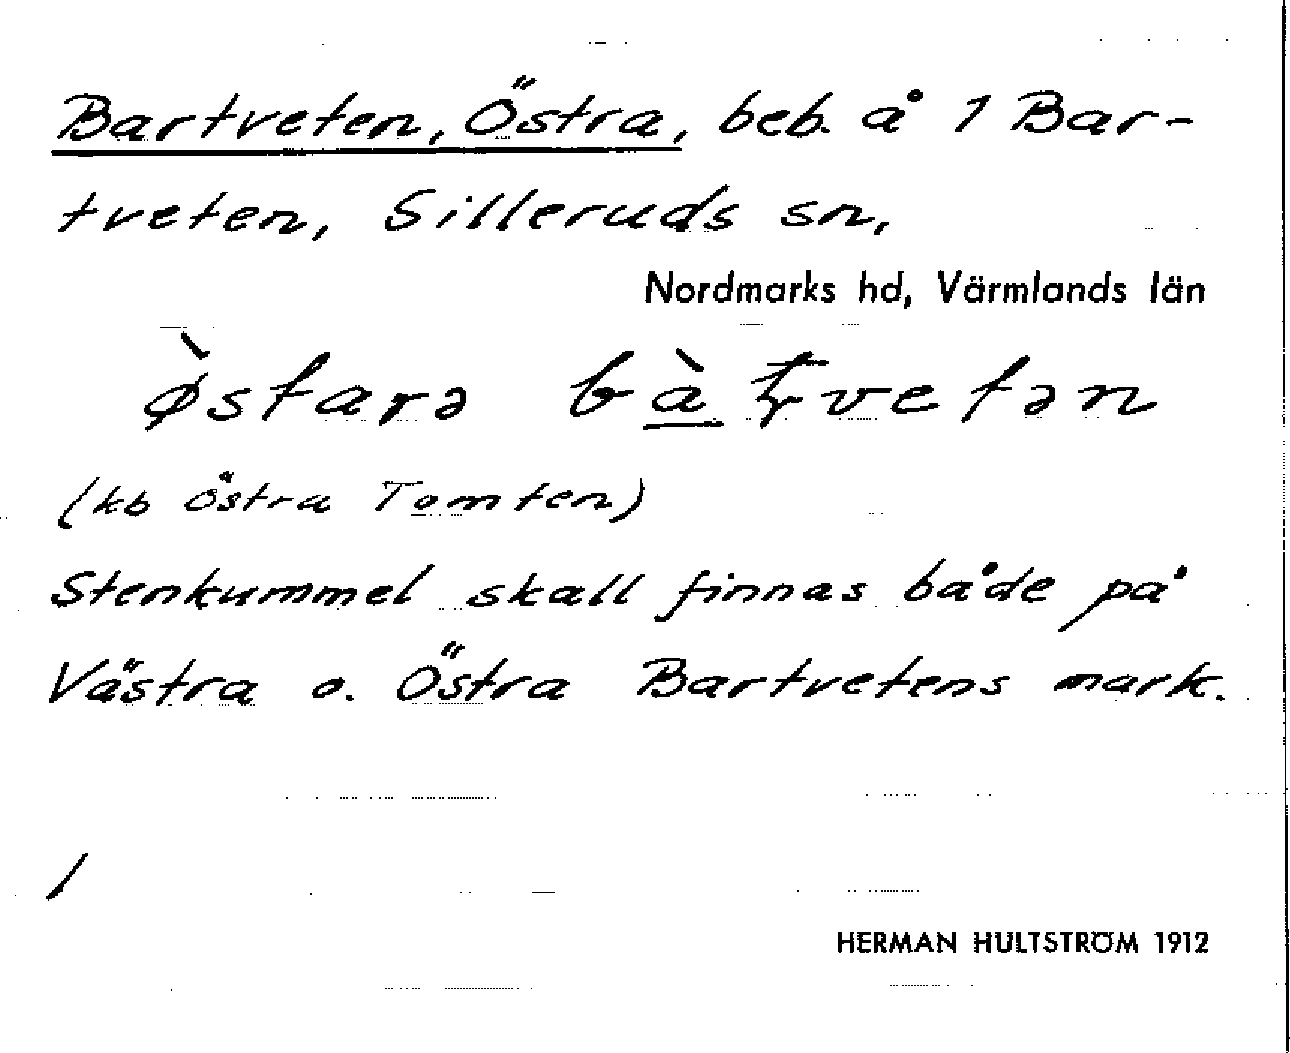 Bartveten, Östra, beb. å 1 Bar-
tveten, Silleruds sn,
Nordmarks hd, Värmlands län
ø̀starə bàt̶vetən
(kb Östra Tomten)
Stenkummel skall finnas både på
Västra o. Östra Bartvetens mark.
/
HERMAN HULTSTRÖM 1912